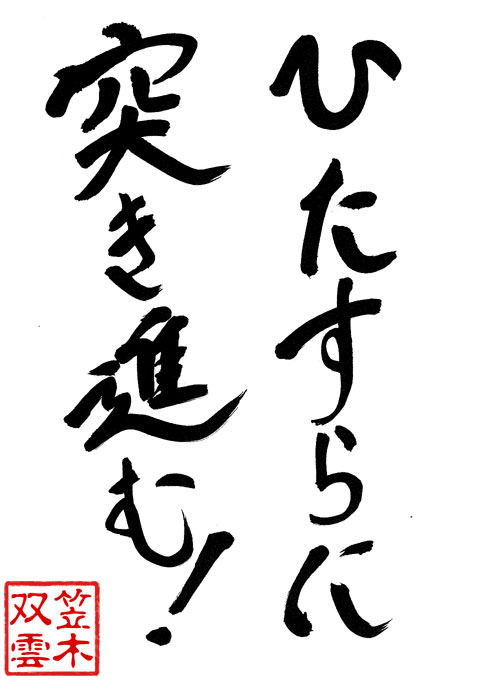 ひたすらに
突き進む!
笠木
双雲